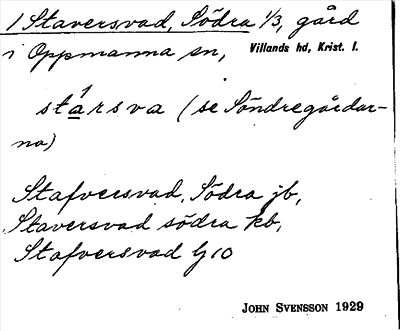 1 Staversvad, Södra 1/3, gård
i Oppmanna sn, Villands hd, Krist. l.
stársva (se Söndregårdar-
na)
Stafversvad, Södra jb,
Staversvad södra kb,
Stafversvad GJ 10
JOHN SVENSSON 1929